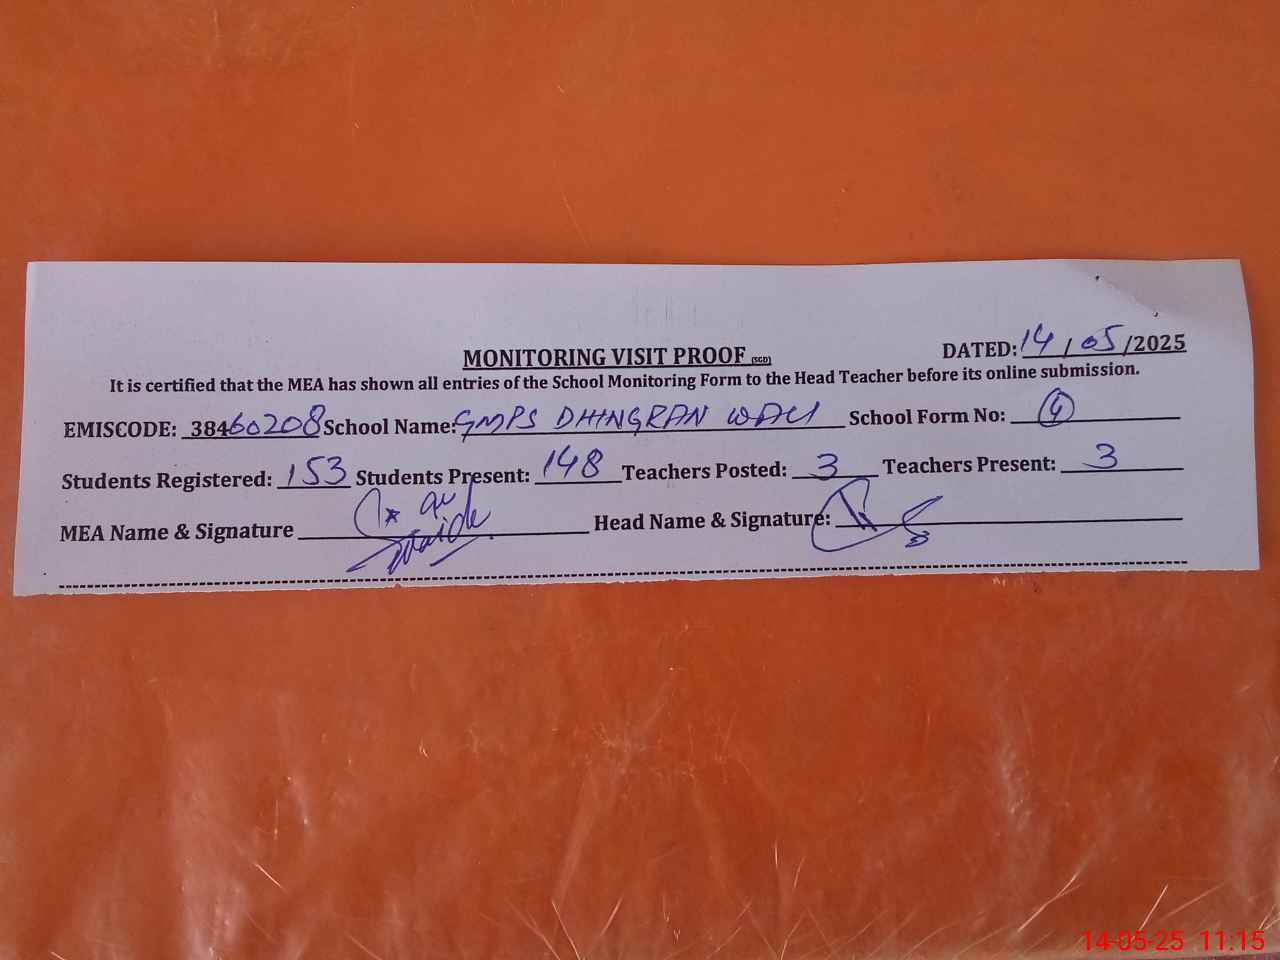 MONITORING VISIT PROOF (SGD) DATED: 14/05/2025
It is certified that the MEA has shown all entries of the School Monitoring Form to the Head Teacher before its online submission.
EMISCODE: 38460208 School Name: GMPS DHINGRAN WALI School Form No: 4
Students Registered: 153 Students Present: 148 Teachers Posted: 3 Teachers Present: 3
MEA Name & Signature Head Name & Signature:
14-05-25 11:15